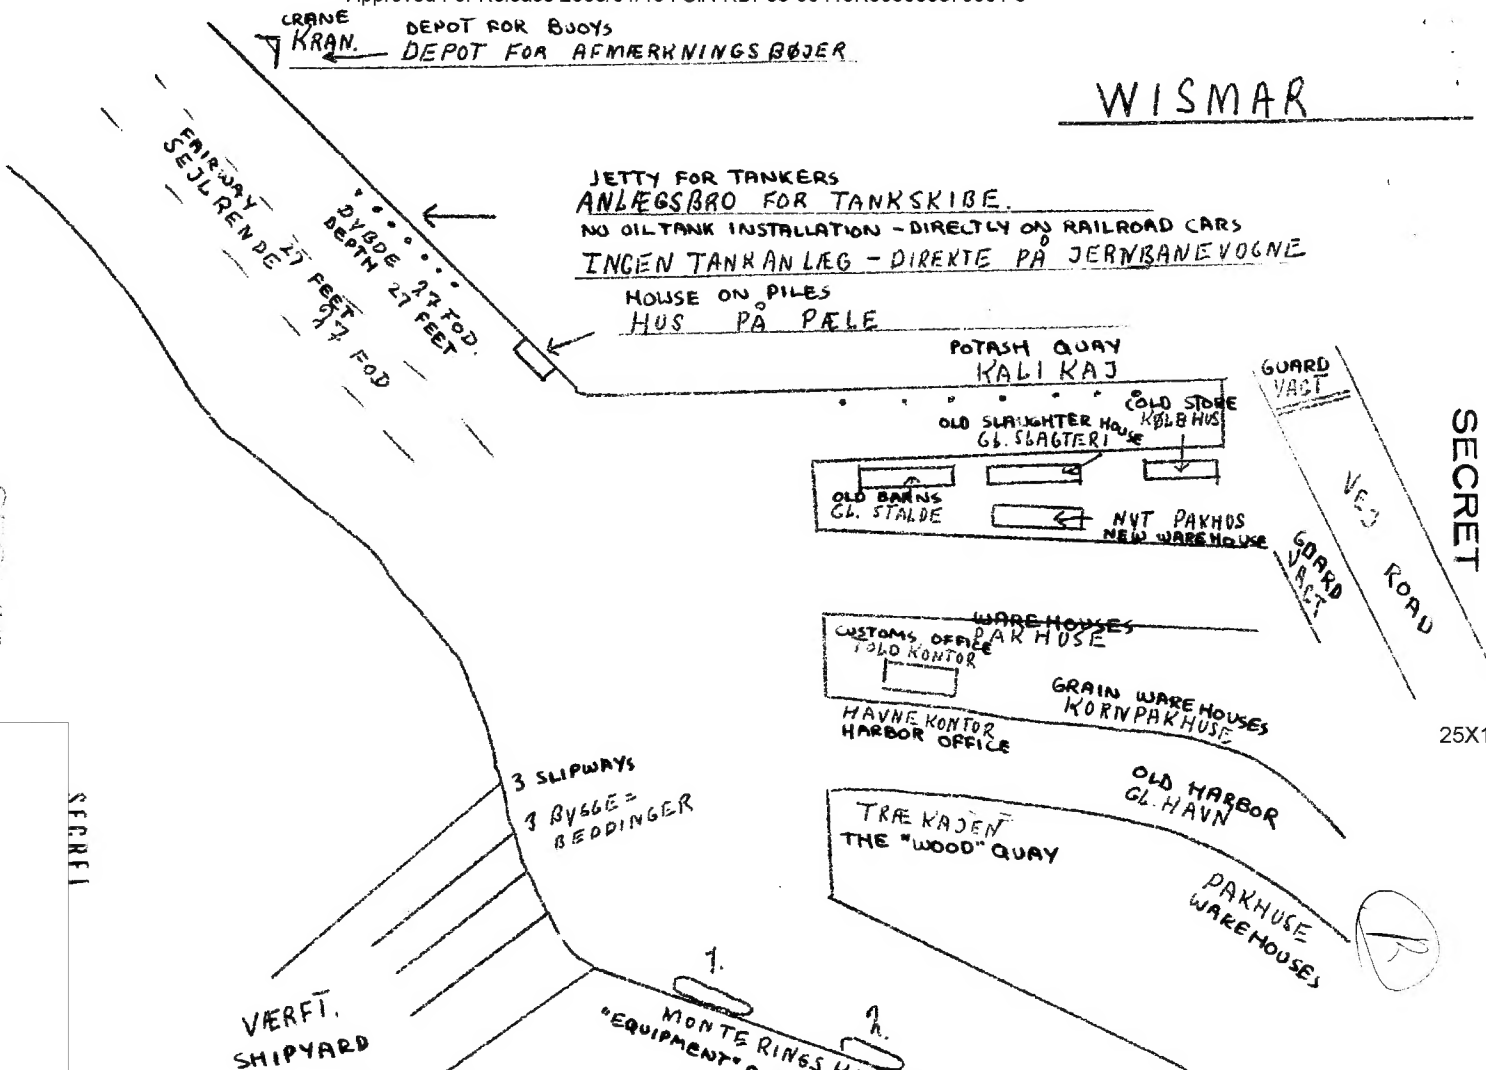 CRANE
KRAN.
DEPOT FOR BUOYS
DEPOT FOR AFMÆRKNINGSBØJER
WISMAR
FAIRWAY 27 FEET
SEJLRENDE 27 FOD
DYBDE 27 FOD.
DEPTH 27 FEET
JETTY FOR TANKERS
ANLÆGSBRO FOR TANKSKIBE.
NO OIL TANK INSTALLATION - DIRECTLY ON RAILROAD CARS
INGEN TANKANLÆG - DIREKTE PÅ JERNBANEVOGNE
HOUSE ON PILES
HUS PÅ PÆLE
POTASH QUAY
KALI KAJ
GUARD
VAGT
COLD STORE
KØLEHUS
OLD SLAUGHTER HOUSE
GL. SLAGTERI
OLD BARNS
GL. STALDE
NYT PAKHUS
NEW WAREHOUSE
GUARD
VAGT
VEJ
ROAD
SECRET
WAREHOUSES
PAKHUSE
CUSTOMS OFFICE
TOLD KONTOR
HAVNE KONTOR
HARBOR OFFICE
GRAIN WAREHOUSES
KORNPAKHUSE
25X1
OLD HARBOR
GL. HAVN
TRÆ KAJEN
THE "WOOD" QUAY
PAKHUSE
WAREHOUSES
R
3 SLIPWAYS
3 BYGGE=
BEDDINGER
SECRET
VÆRFT.
SHIPYARD
1.
2.
MONTERINGS
"EQUIPMENT"